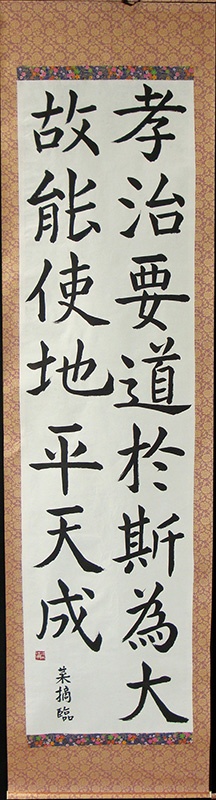 孝治要道於斯為大
故能使地平天成
菜摘臨